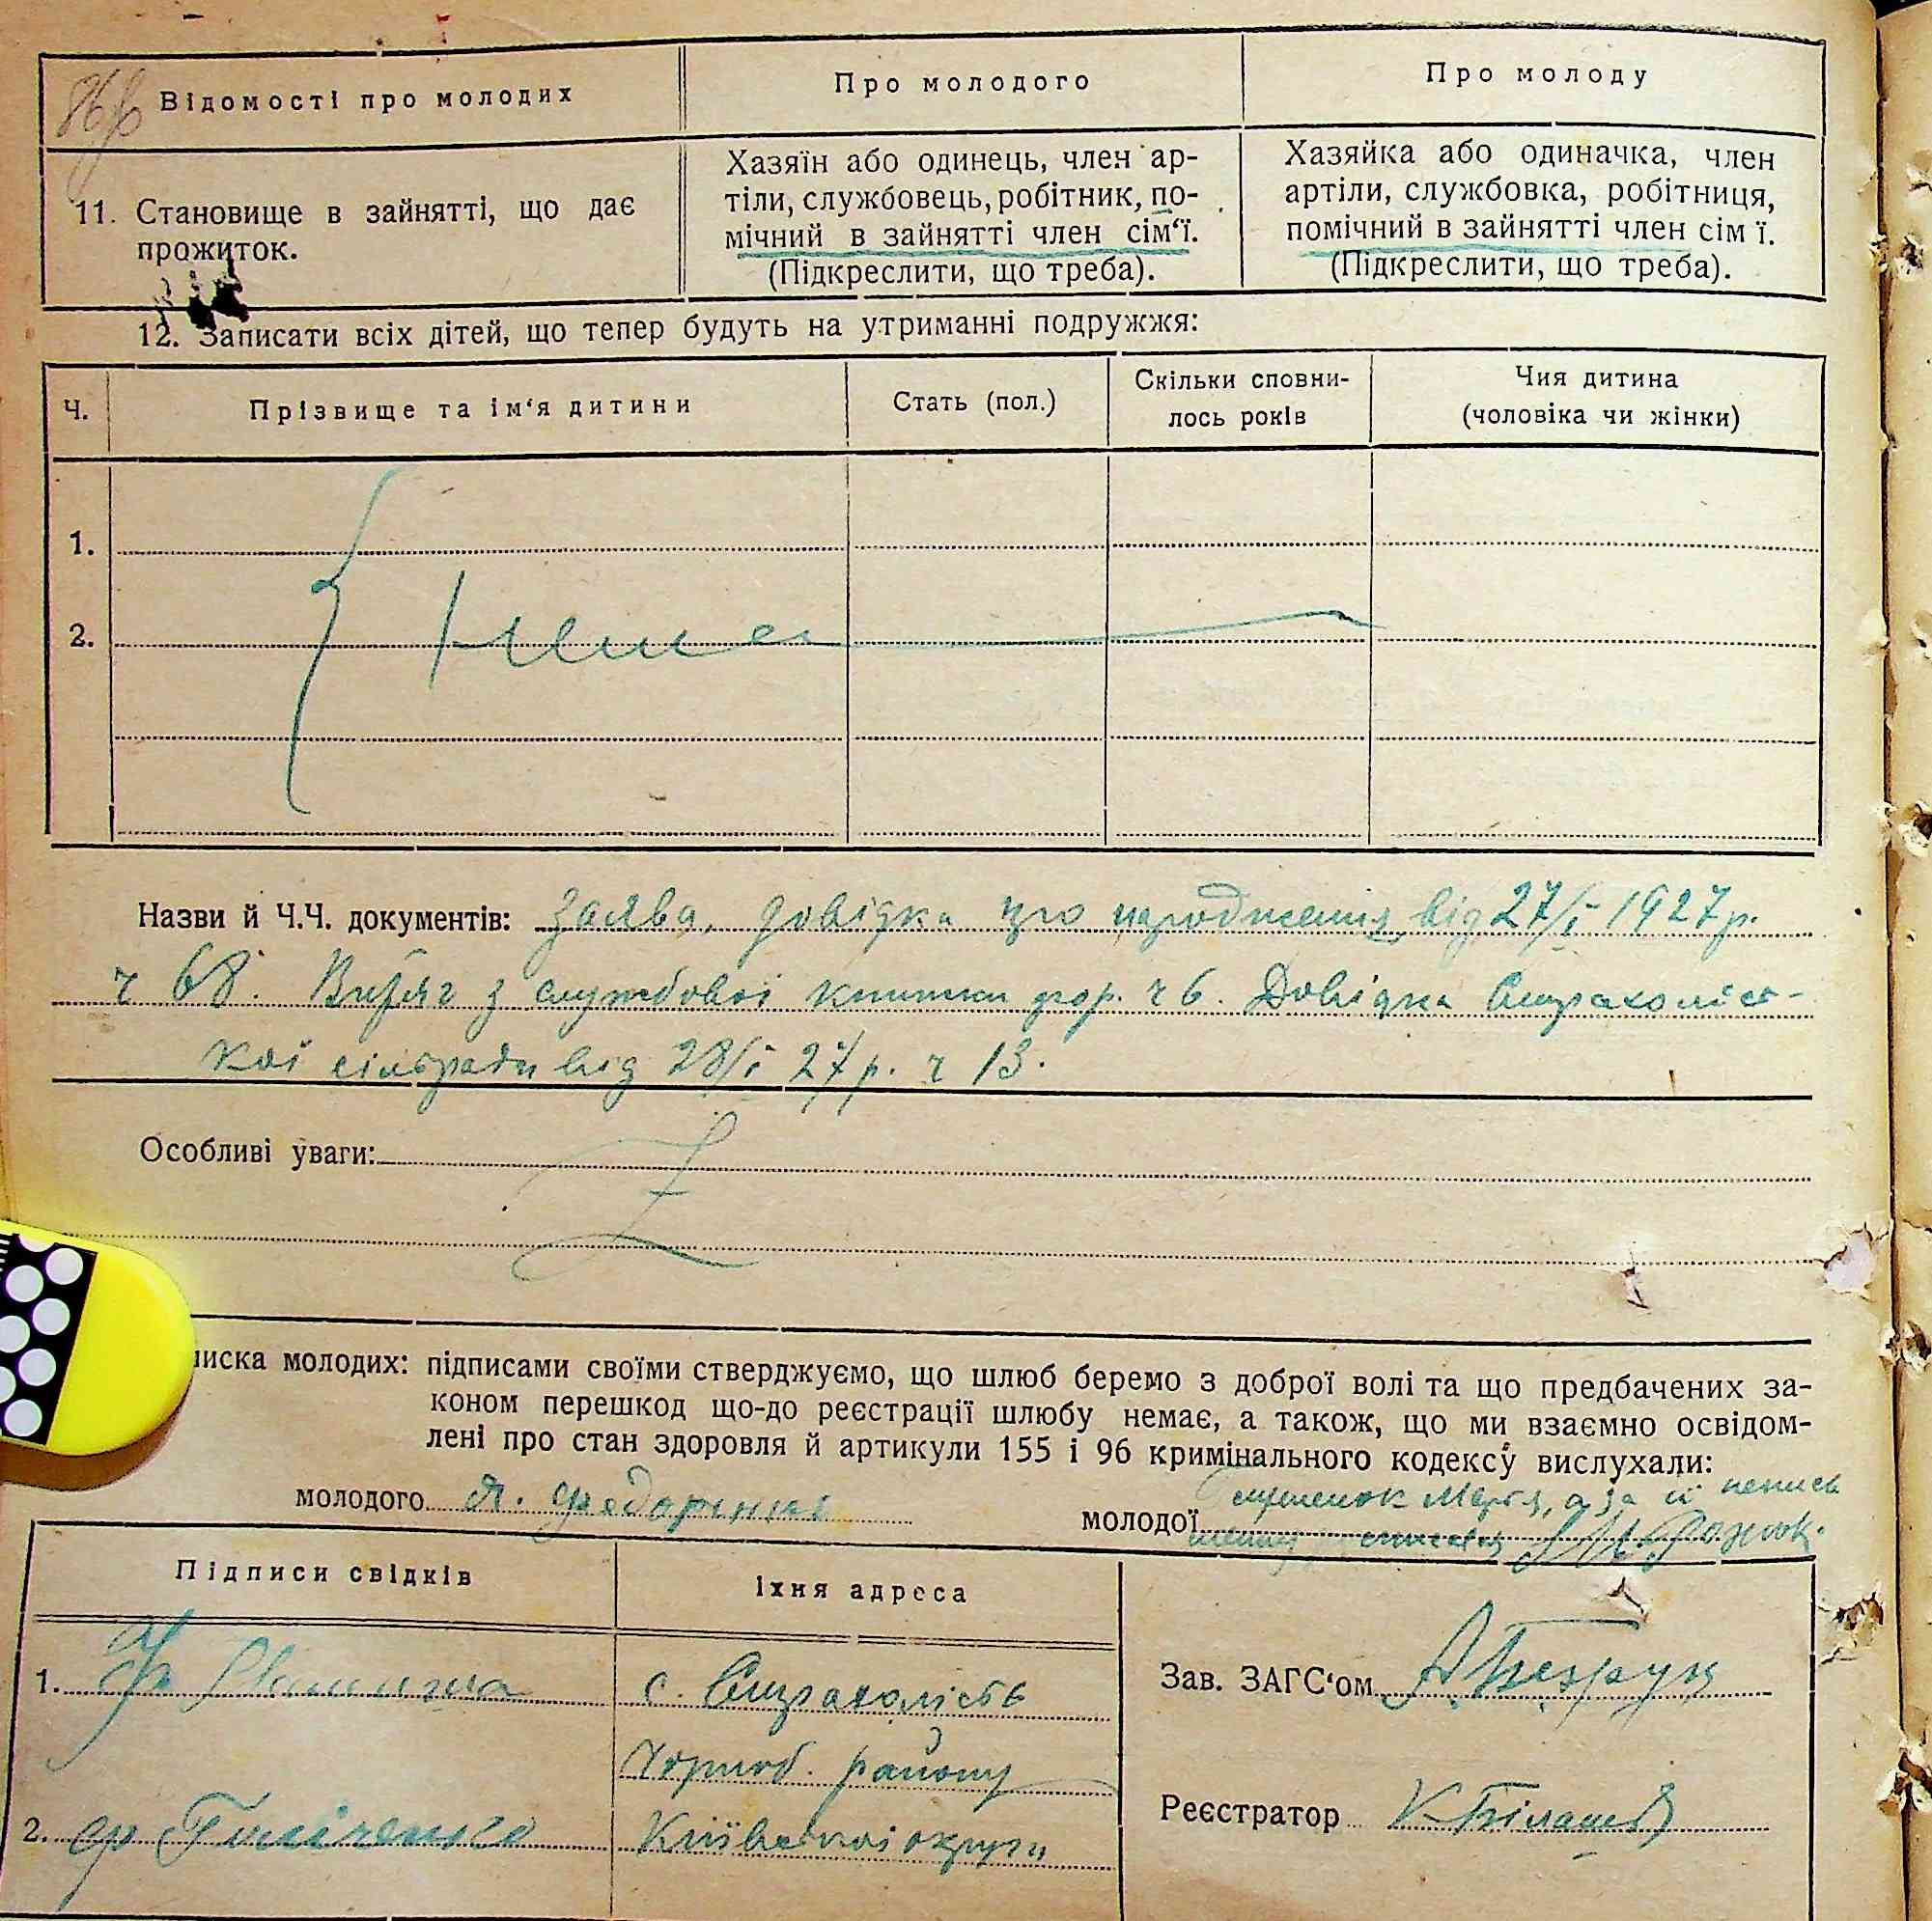 Відомості про молодих
Про молодого
Про молоду
11. Становище в зайнятті, що дає
прожиток.
Хазяїн або одинець, член ар-
тіли, службовець, робітник, по-
мічний в зайнятті член сім‘ї.
(Підкреслити, що треба).
Хазяйка або одиначка, член
артіли, службовка, робітниця,
помічний в зайнятті член сім ї.
(Підкреслити, що треба).
12. Записати всіх дітей, що тепер будуть на утриманні подружжя:
Ч.
Прізвище та ім‘я дитини
Стать (пол.)
Скільки сповни-
лось років
Чия дитина
(чоловіка чи жінки)
1.
2.
Назви й Ч.Ч. документів: Заява, довідка про народження від 27/I 1927 р.
ч 68. Витяг з службової книжки фор. ч 6. Довідка
кої сільради від 28/I 27 р. ч 13.
Особливі уваги:
иска молодих: підписами своїми стверджуємо, що шлюб беремо з доброї волі та що предбачених за-
коном перешкод що-до реєстрації шлюбу немає, а також, що ми взаємно освідом-
лені про стан здоровля й артикули 155 і 96 кримінального кодексу вислухали:
молодого
молодої Марія, а за її
Підписи свідків
Їхня адреса
1.
с.
Чорноб. району
2.
Київської округи
Зав. ЗАГС‘ом
Реєстратор